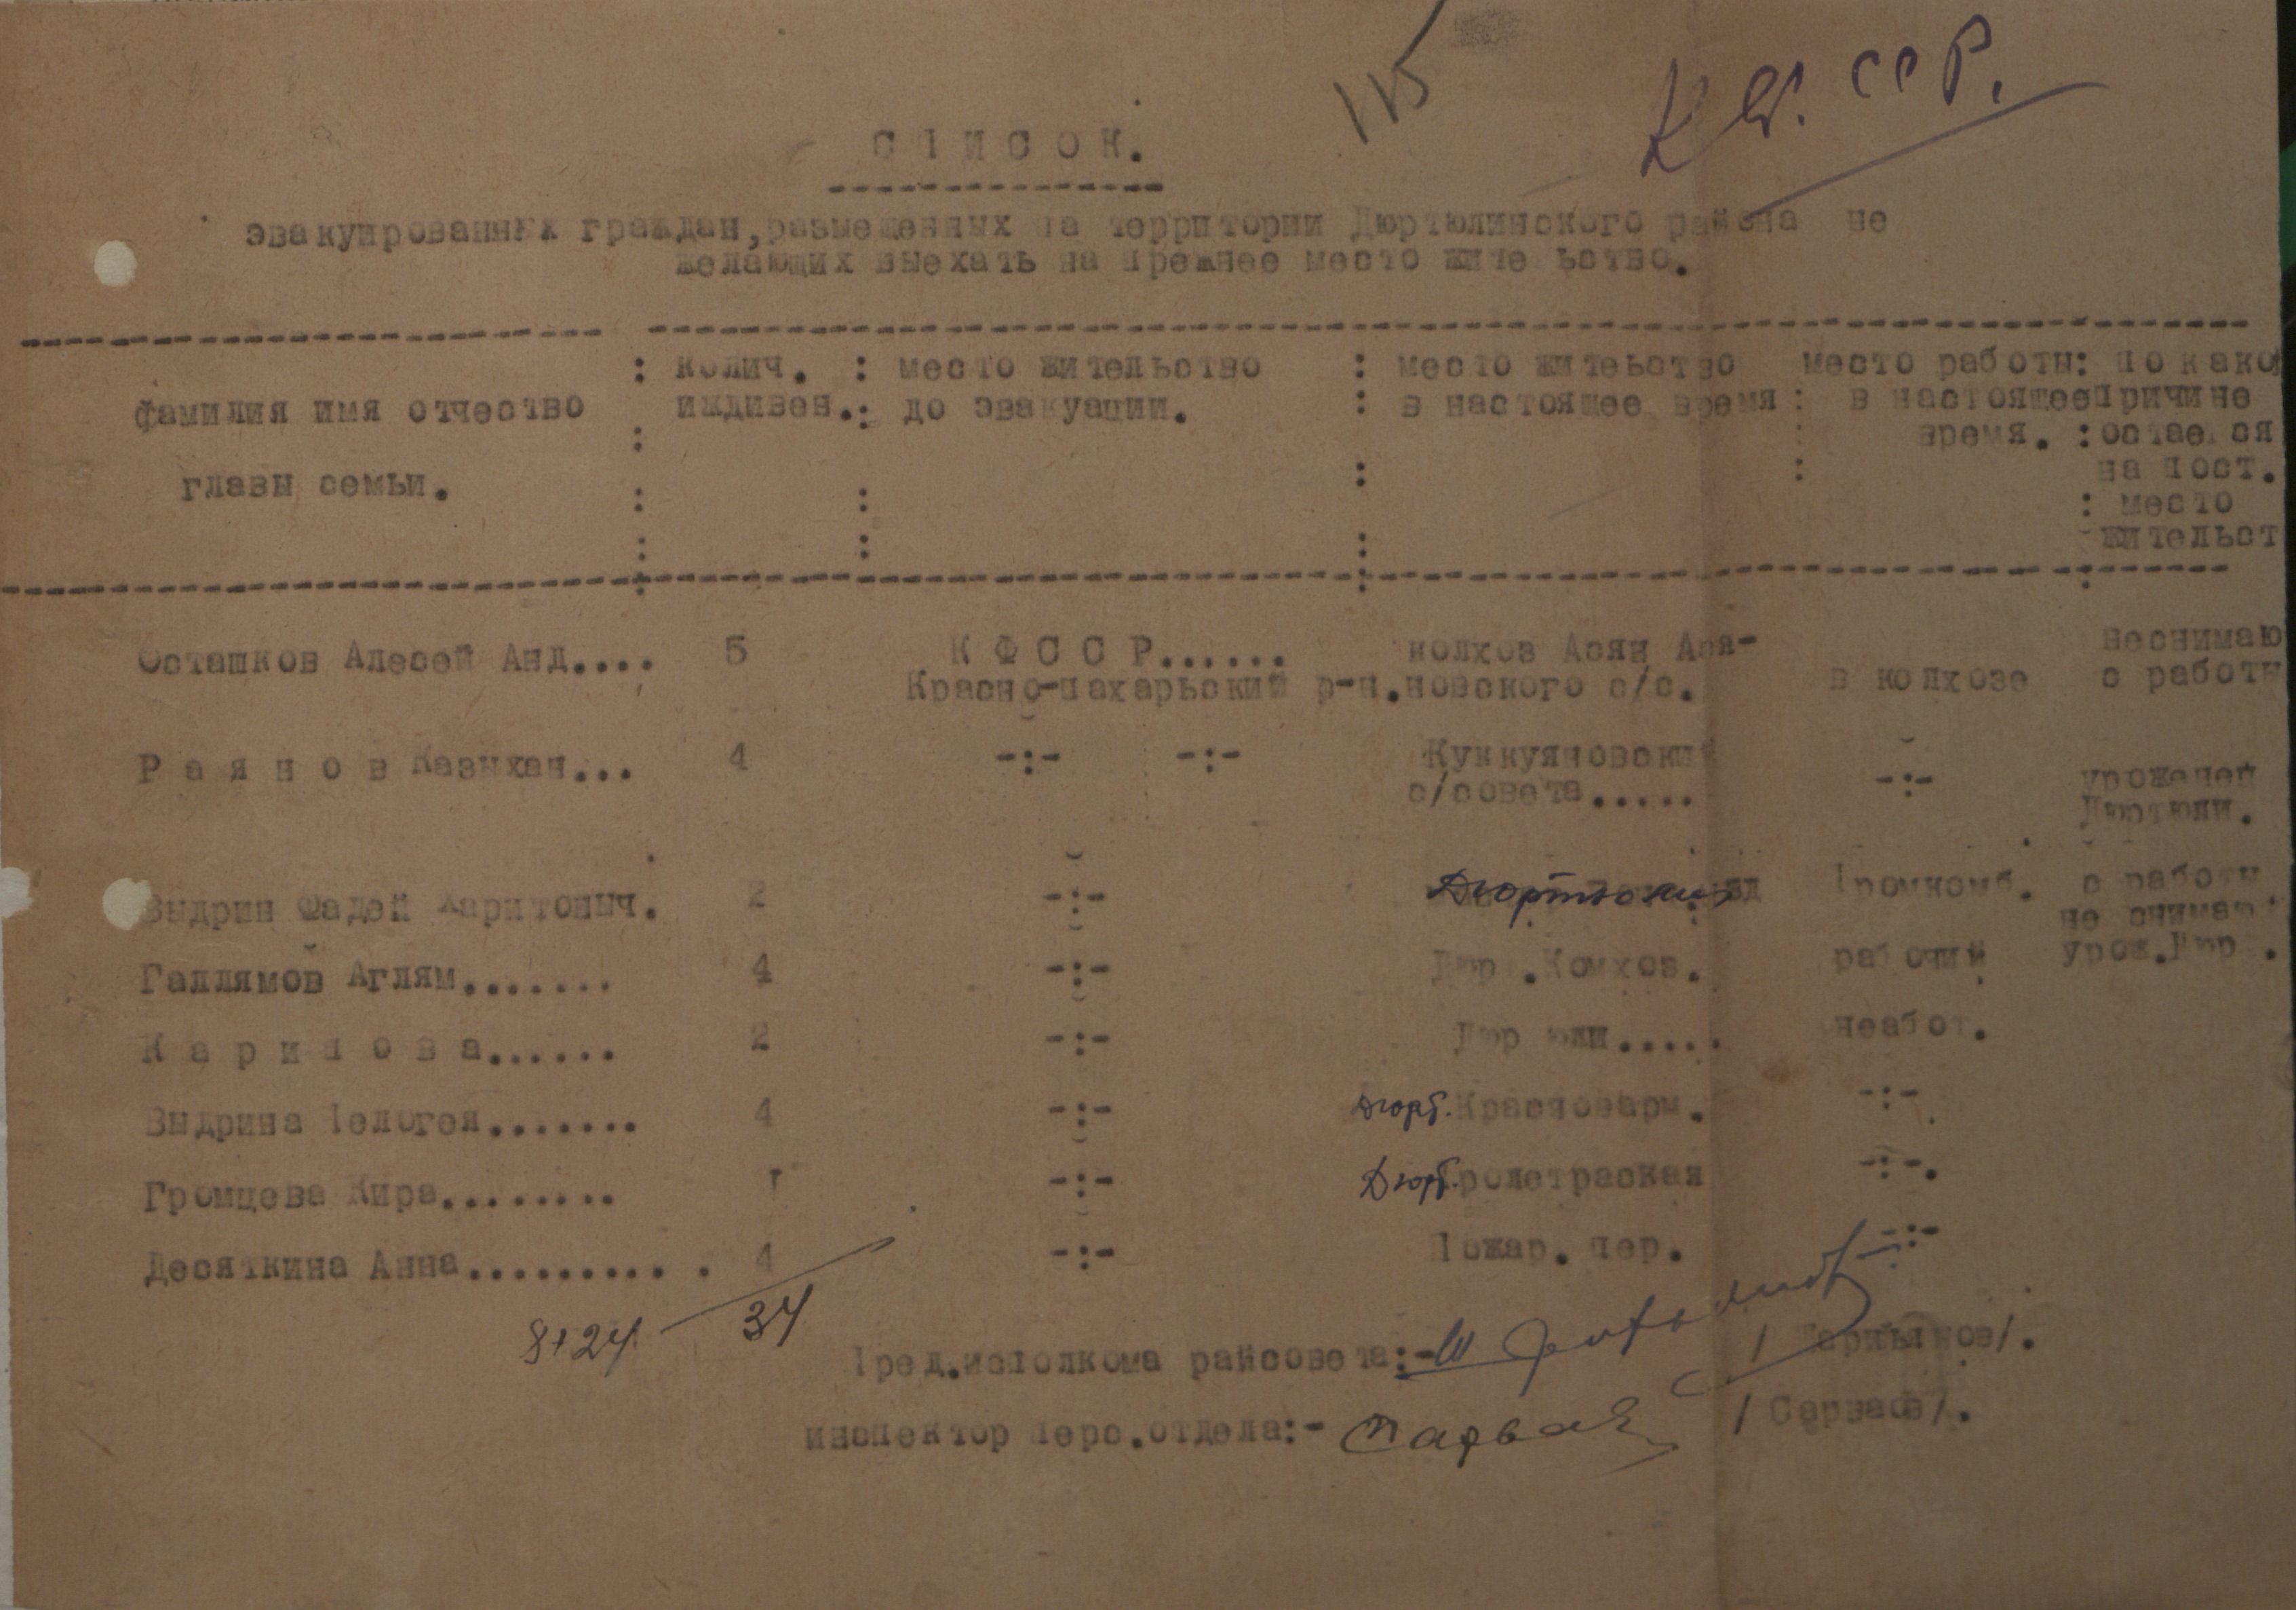 115
КФ. ССР.
СПИСОК.
эвакуированных граждан, размещенных на территории Дюртюлинского района не
желающих выехать на прежнее место жите ьство.
: колич. : место жительство : место житеьство место работы: по како
фамилия имя отчество иждивен.: до эвакуации. : в настоящее время : в настоящее причине
: время. : остается
главы семьи. : на пост.
: место
жительст
Осташков Алесей Анд.... 5 К Ф С С Р...... колхоз Асян Ася- неснимаю
Красно-пахарьский р-н. новского с/с. в колхозе с работы
Р а я н о в Казыхан... 4 -:- -:- Куккуяновский -:- уроженец
с/совета..... Дюртюли.
Выдрин Фадей Харитоныч. 2 -:- Дюртюли Промкомб. с работы
не снимаю.
Галлямов Аглям....... 4 -:- Дюр .Комхоз. рабочий урож.Дюр .
К а р и п о в а...... 2 -:- Дюр юли..... неабот.
Выдрина Пелогея....... 4 -:- Дюрт. Красноарм. -:-
Громцева Кира........ I -:- Дюрт. Пролетраская -:-.
Десяткина Анна.......... . 4 -:- Пожар. пер. -:-
8+24 34
Пред.исполкома райсовета:-
инспектор перс.отдела:-